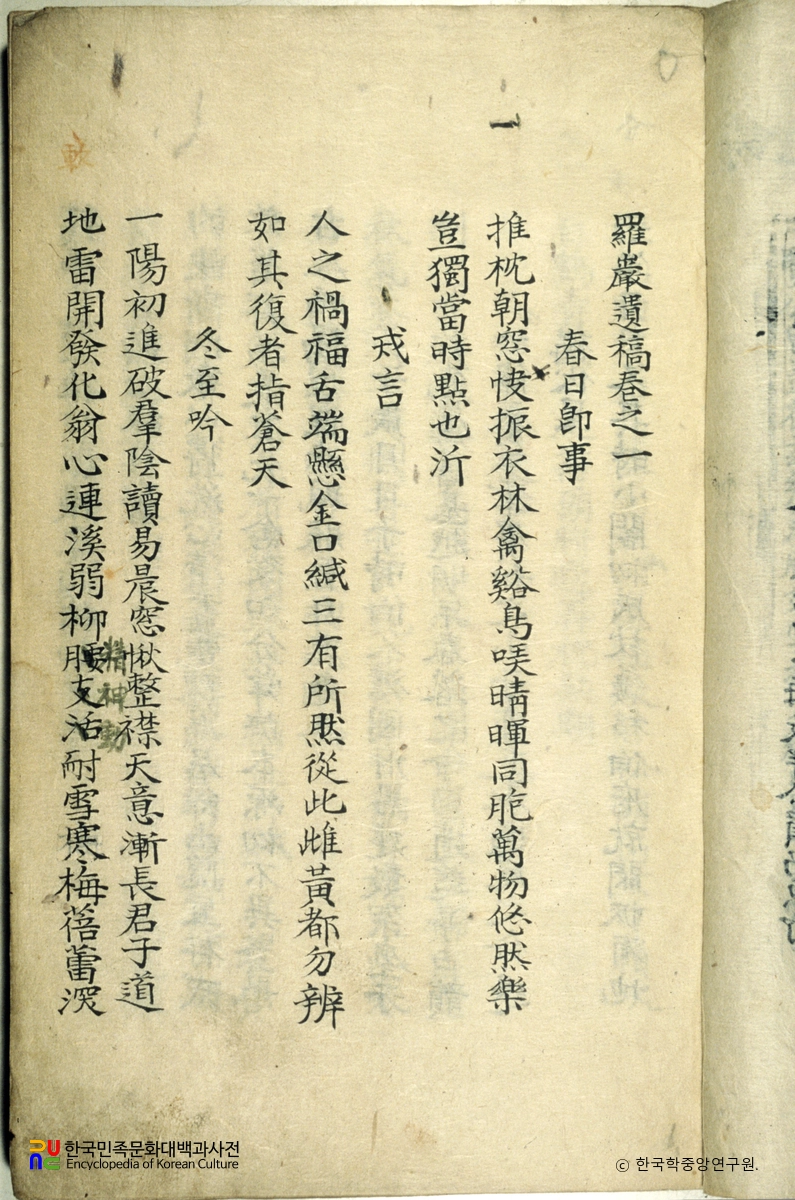 羅巖遺稿卷之一
春日卽事
一
推枕朝窓快振衣林禽谿鳥唉晴暉同胞萬物悠然樂
豈獨當時點也沂
戎言
人之禍福舌端懸金口緘三有所然從此雌黃都勿辨
如其復者指蒼天
冬至吟
一陽初進破羣陰讀易晨窓愀整襟天意漸長君子道
精神動
地雷開發化翁心連溪弱柳腰支活耐雪寒梅蓓蕾深
한국민족문화대백과사전
Encyclopedia of Korean Culture
© 한국학중앙연구원.